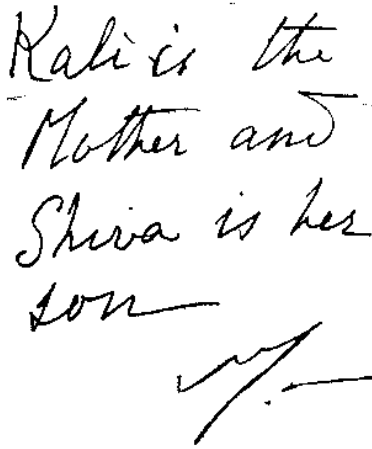 Kali is the
Mother and
Shiva is her
son